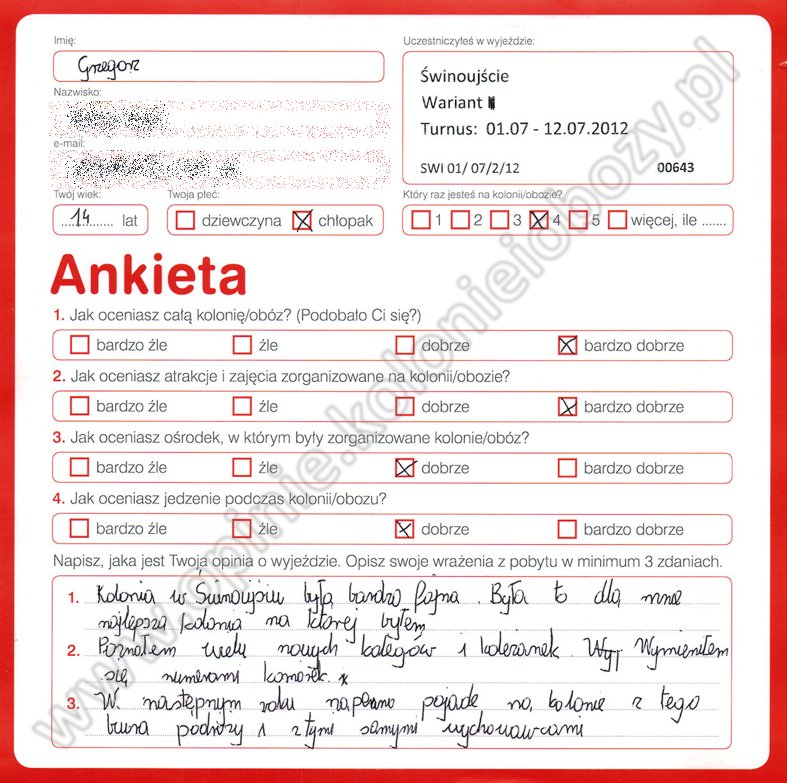 Imię:
Grzegorz
Nazwisko:
e-mail:
Twój wiek:
14 lat
Twoja płeć:
dziewczyna chłopak
Uczestniczyłeś w wyjeździe:
Świnoujście
Wariant
Turnus: 01.07 - 12.07.2012
SWI 01/ 07/2/12 00643
Który raz jesteś na kolonii/obozie?
1 2 3 4 5 więcej, ile .......
Ankieta
1. Jak oceniasz całą kolonię/obóz? (Podobało Ci się?)
bardzo źle źle dobrze bardzo dobrze
2. Jak oceniasz atrakcje i zajęcia zorganizowane na kolonii/obozie?
bardzo źle źle dobrze bardzo dobrze
3. Jak oceniasz ośrodek, w którym były zorganizowane kolonie/obóz?
bardzo źle źle dobrze bardzo dobrze
4. Jak oceniasz jedzenie podczas kolonii/obozu?
bardzo źle źle dobrze bardzo dobrze
Napisz, jaka jest Twoja opinia o wyjeździe. Opisz swoje wrażenia z pobytu w minimum 3 zdaniach.
1. Kolonia w Świnoujściu była bardzo fajna. Była to dla mnie
najlepsza kolonia na której byłem
2. Poznałem wielu nowych kolegów i koleżanek. Wymieniłem
się numerami komórek.
3. W następnym roku napewno pojadę na kolonie z tego
biura podróży i z tymi samymi wychowawcami
www.opinie.kolonieiobozy.pl